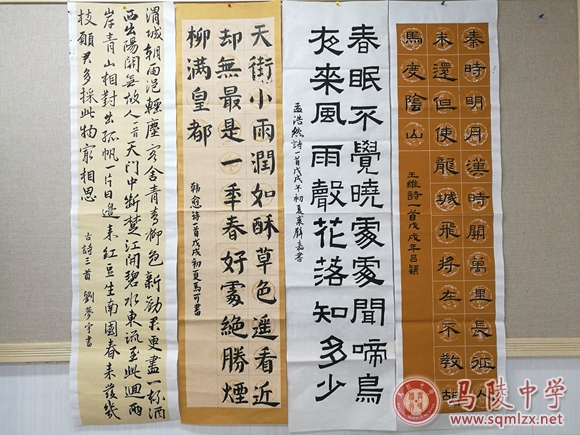 秦時明月漢時關萬里長征人
未還但使龍城飛將在不教胡
馬度陰山
王維詩一首戊戌年呂穎
春眠不覺曉處處聞啼鳥
夜来風雨聲花落知多少
孟浩然詩一首戊戌年初夏
天街小雨潤如酥草色遥看近
却無最是一秊春好處絶勝煙
柳滿皇都
韓愈诗一首戊戌初夏馬可書
渭城朝雨浥輕塵客舍青青柳色新勸君更盡一杯酒
西出陽關無故人天門中断楚江開碧水東流至此迴兩
岸青山相對出孤帆一片日邊来紅豆生南國春来發幾
枝願君多採此物最相思
古詩三首 劉夢宇書
马陵中学
www.sqmlzx.net